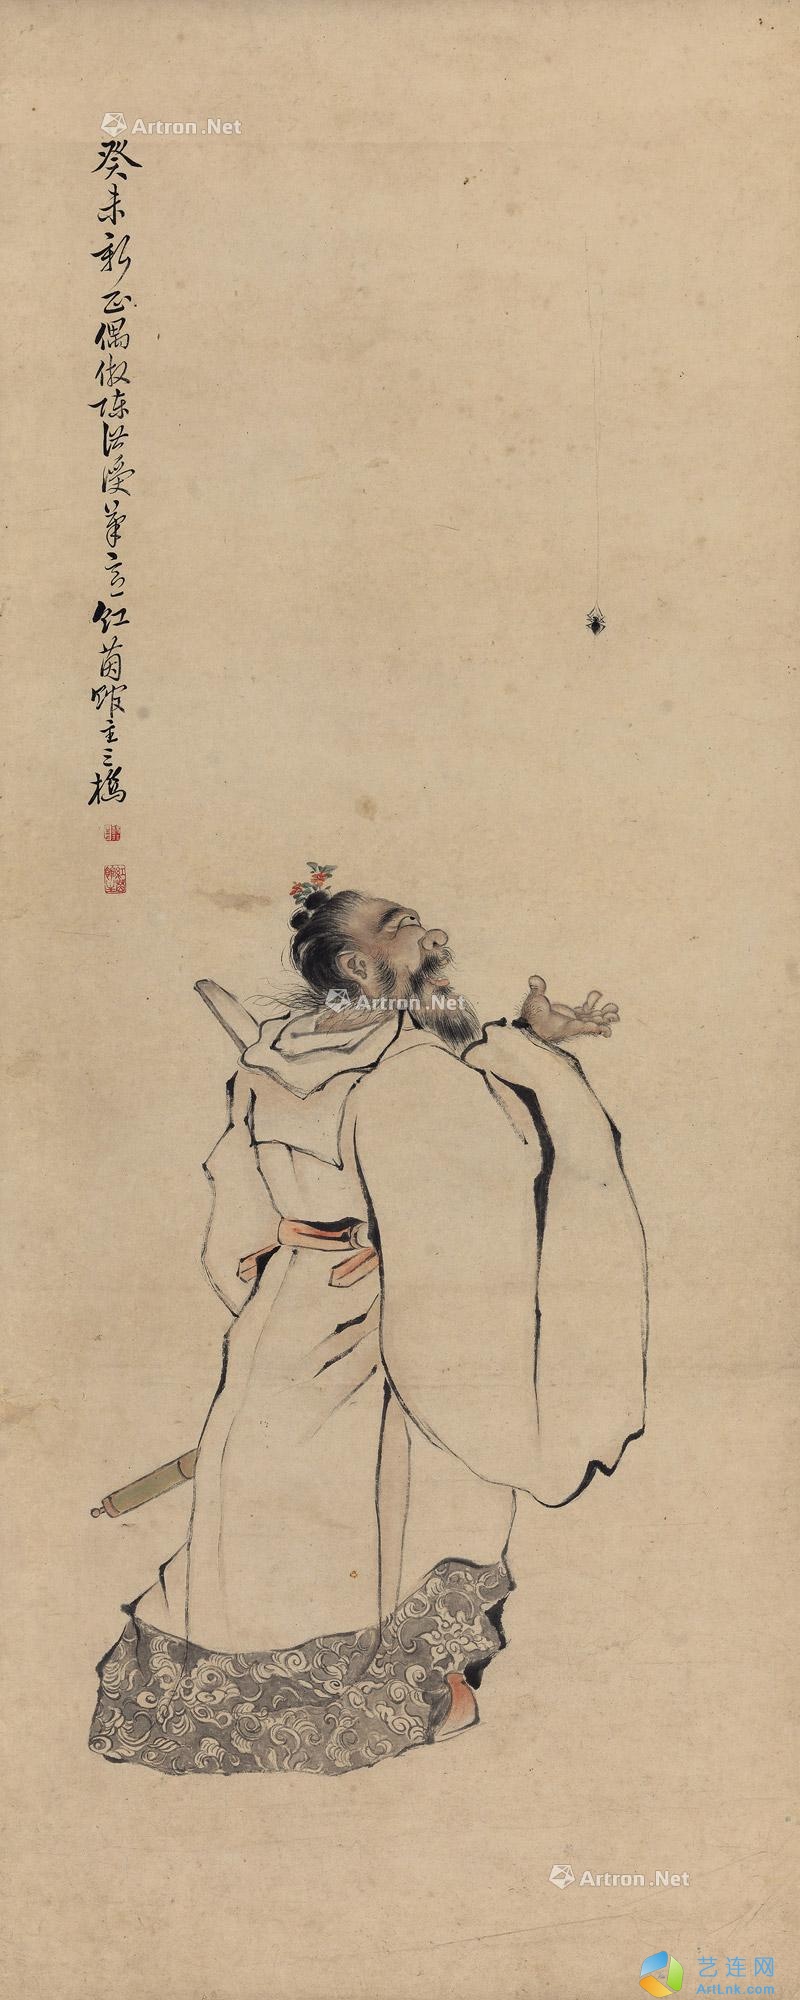 Artron.Net
癸未新正偶仿陈洪绶笔意红茵馆主三橋
Artron.Net
Artron.Net
艺连网
ArtLnk.com